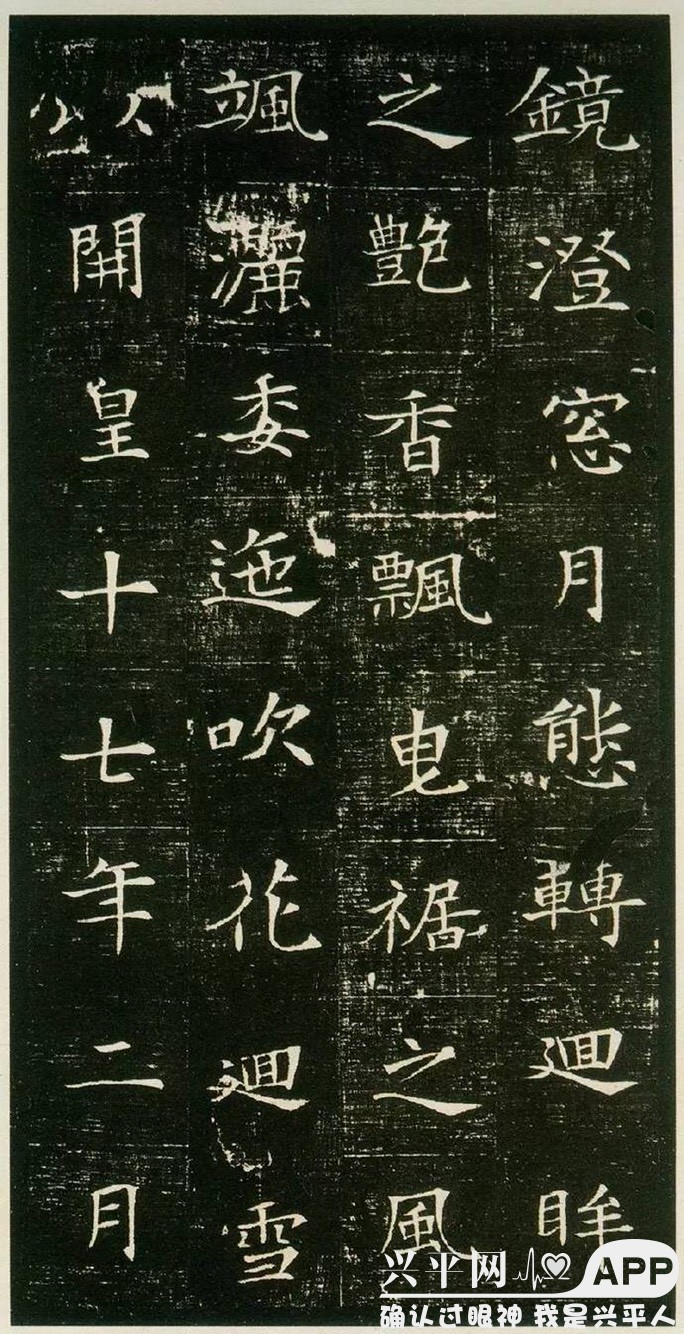 鏡澄窓月態轉迴眸
之艷香飄曳裾之風
颯灑委迤吹花迴雪
開皇十七年二月
兴平网 APP
确认过眼神 我是兴平人